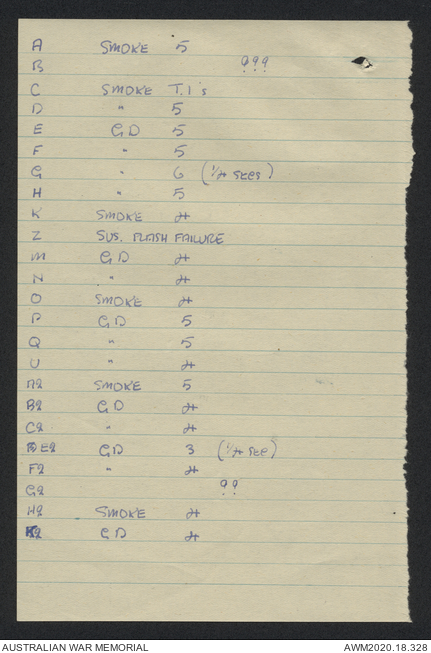 A SMOKE 5
B ???
C SMOKE T.I's
D " 5
E GD 5
F " 5
G " 6 (1/4 secs)
H " 5
K SMOKE 4
Z SUS. FLASH FAILURE
M GD 4
N " 4
O SMOKE 4
P GD 5
Q " 5
U " 4
A2 SMOKE 5
B2 GD 4
C2 " 4
E2 GD 3 (1/4 sec)
F2 " 4
G2 ??
H2 SMOKE 4
K2 GD 4
AUSTRALIAN WAR MEMORIAL AWM2020.18.328